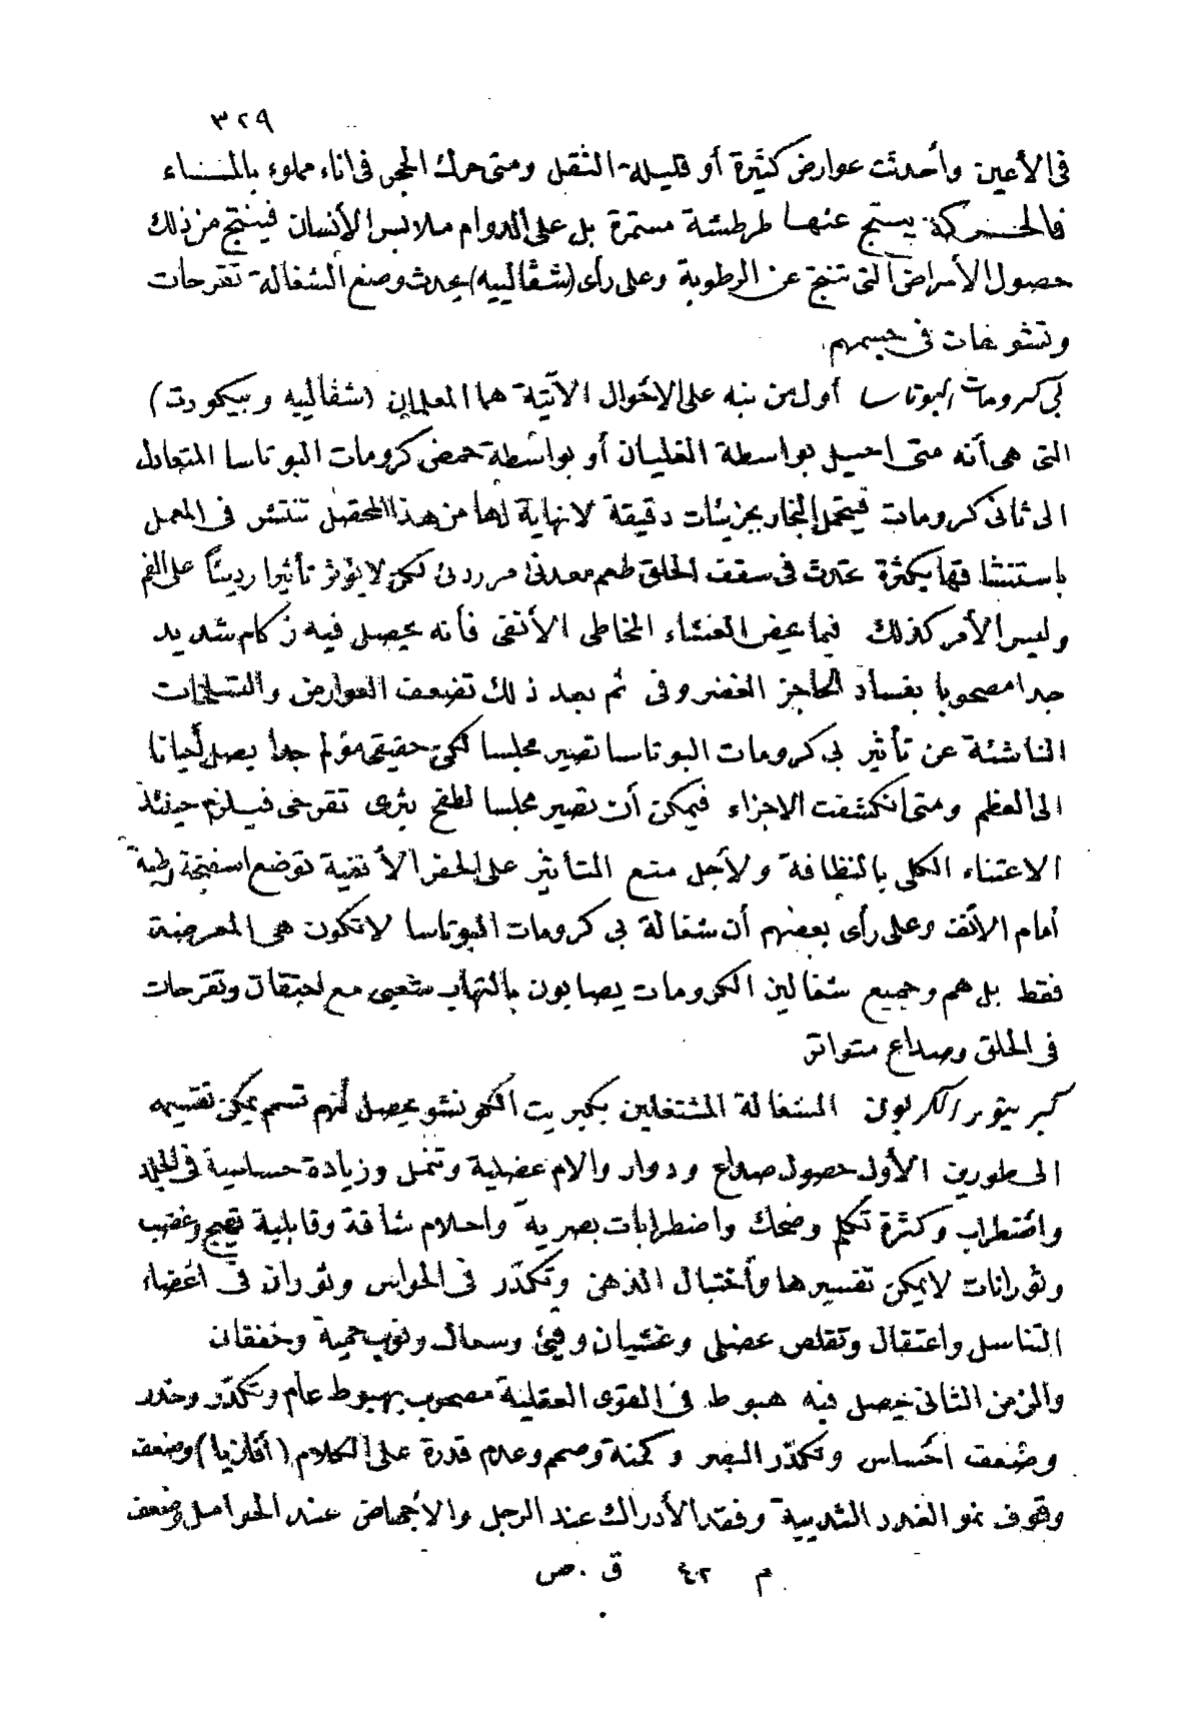 ٣٢٩
فى الأعين وأحدثت عوارض كثيرة أو قليلة الثقل ومتى حرك الحجر فى اناء مملوء بالمـــاء
فالحـركة يستنتج عنهـا طرطشة مستمرة بل على الدوام ملابس الأنسان فينتج من ذلك
حصول الأمراض التى تنتج عن الرطوبة وعلى رأى (شڤالييه) يحدث وصنع الشغالة تقرحات
وتشوهات فى جسمهم
بى كرومات البوتاسا أول من نبه على الاحوال الآتية هما المعلمان (شفالييه وبيكورت)
التى هى أنه متى احيل بواسطة الغليان أو بواسطة حمض كرومات البوتاسا المتعادل
الى ثانى كرومات فيتحمل البخار بجزيئات دقيقة لانهاية لها من هذا المحصل تنتشر فى المعمل
باستنشاقها بكثرة يحدث فى سقف الحلق طعم معدنى مر ردئ لكن لا يؤثر تأثيرا رديئاً على الفم
وليس الأمر كذلك فيما يخص الغشاء المخاطى الأنفى فأنه يحصل فيه زكام شديد
جدا مصحوبا بفساد الحاجز الغضروفى ثم بعد ذلك تضعف العوارض والتسلخات
الناشئة عن تأثير بى كرومات البوتاسا تصير مجلسا لكى حقيقى مؤلم جدا يصل أحيانا
الى العظم ومتى انكشفت الاجزاء فيمكن أن تصير مجلسا لطفح بثرى تقرحى فيلزم حينئذ
الاعتناء الكلى بالنظافة ولأجل منع التأثير على الحفر الأنفية توضع اسفنجة رطبة
أمام الأنف وعلى رأى بعضهم أن شغالة بى كرومات البوتاسا لا تكون هى المعرضة
فقط بل هم وجميع شغالين الكرومات يصابون بالتهاب شعبى مع احتقان وتقرحات
فى الحلق وصداع متواتر
كبريتور الكربون الشغالة المشتغلين بكبريت الكوتشو يحصل لهم تسمم يمكن تقسيمه
الى طورين الأول حصول صداع ودوار والام عضلية وتنمل وزيادة حساسية فى الجلد
واضطراب وكثرة تكلم وضحك واضطرابات بصرية واحلام شاقة وقابلية تهيج وغضب
وثورانات لا يمكن تفسيرها وأختبال الذهن وتكدّر فى الحواس وثوران فى أعضاء
التناسل واعتقال وتقلص عضلى وغشيان وقيئ وسعال ونوب حمية وخفقان
والزمن الثانى يحصل فيه هبوط فى القوى العقلية مصحوب بهبوط عام وتكدّر وخدر
وضعف احساس وتكدّر البصر وكمنة وصمم وعدم قدرة على الكلام (أفازيا) وضعف
وقوف نمو الغدد الثديية وفقد الأدراك عند الرجل والاجهاض عند الحوامل وضعف
م ٤٢ ق . ص